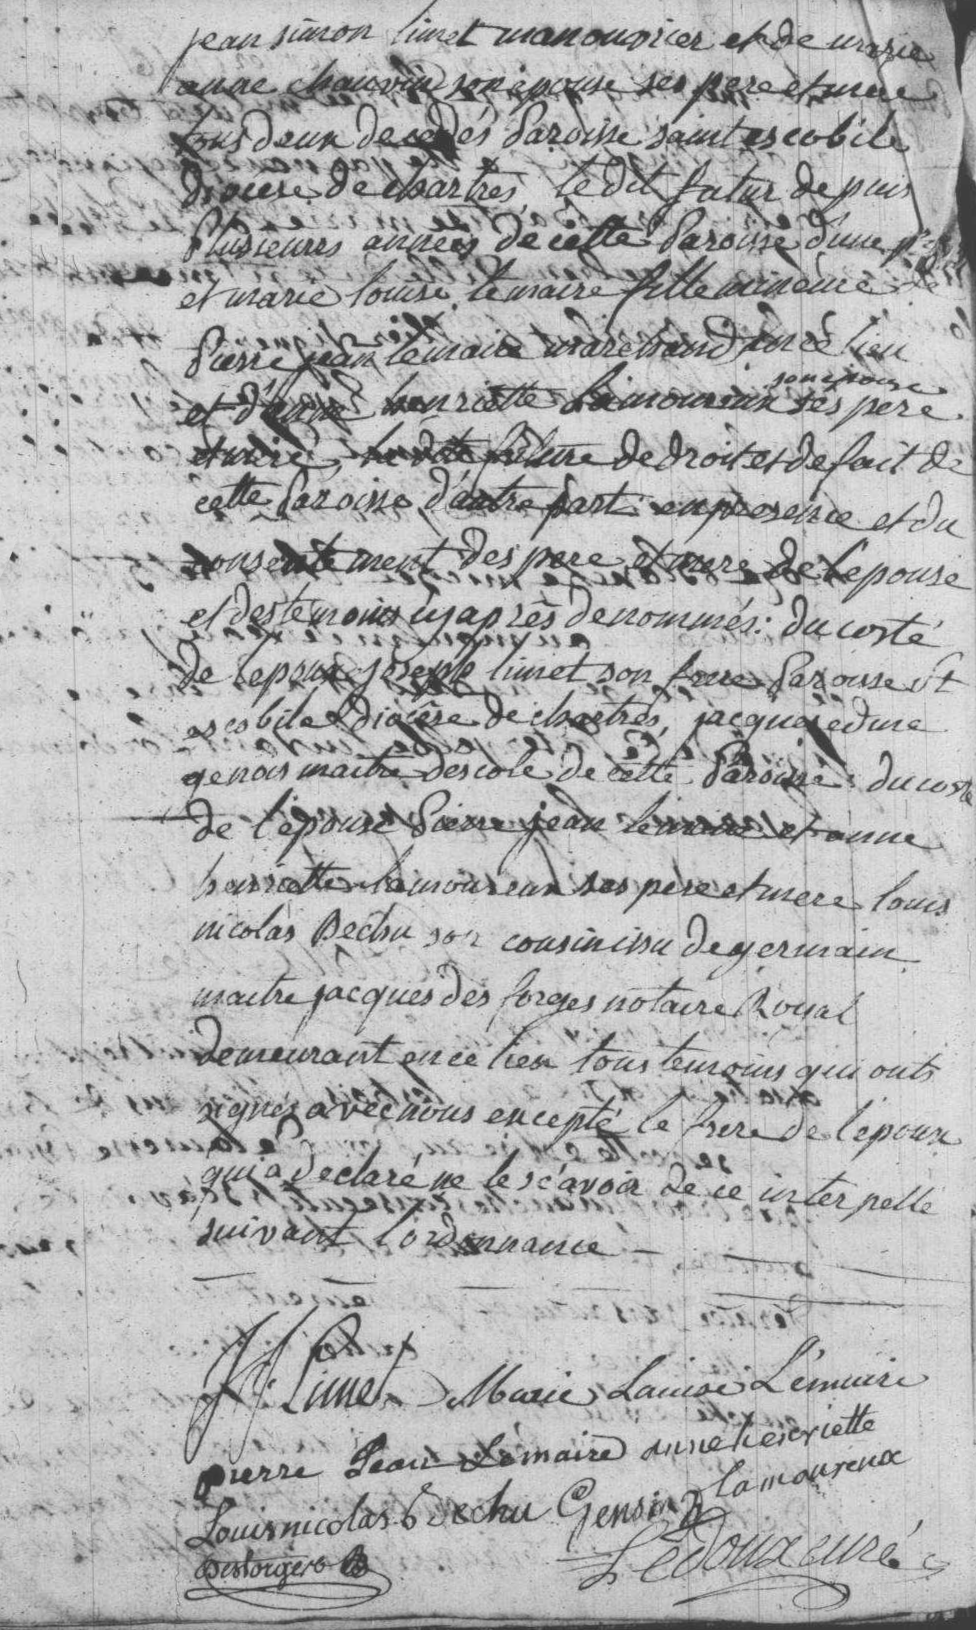 jean simon limet manouvrier et de marie
anne chauvin son epouse ses pere et mere
tous deux decedés Paroisse saint escobile
diocese de chartres, le dit futur depuis
Plusieurs années de cette Paroisse d'une part
et marie louise lemaire fille mineure de
Pierre jean lemaire marchand en ce lieu
son epouse
et d'anne henriette Lamoureux ses pere
et mere, la dite future de droit et de fait de
cette Paroisse d'autre part en presence et du
consentement des pere et mere de l'epouse
et des temoins cy après denommés: du costé
de l'epoux joseph limet son frere Paroisse st
escobile diocese de chartres, jacques edme
genois maitre d'escole de cette Paroisse: du costé
de l'epouse Pierre jean lemaire et anne
henriette lamoureux ses pere et mere louis
nicolas Bechu son cousin issu de germain
maitre jacques des forges notaire Royal
demeurant en ce lieu tous temoins qui onts
signés avec nous excepté le frere de l'epoux
qui a declaré ne le sçavoir de ce interpellé
suivant l'ordonnance
Limet Marie Louise Lemaire
pierre Jean Lemaire anne henriette
lamoureux
Louis nicolas Bechu Genois
Desforges
Ledoux curé